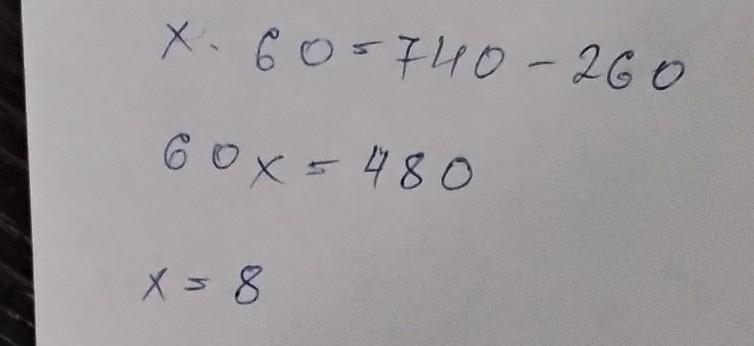 x. 60=740-260
60x=480
x=8